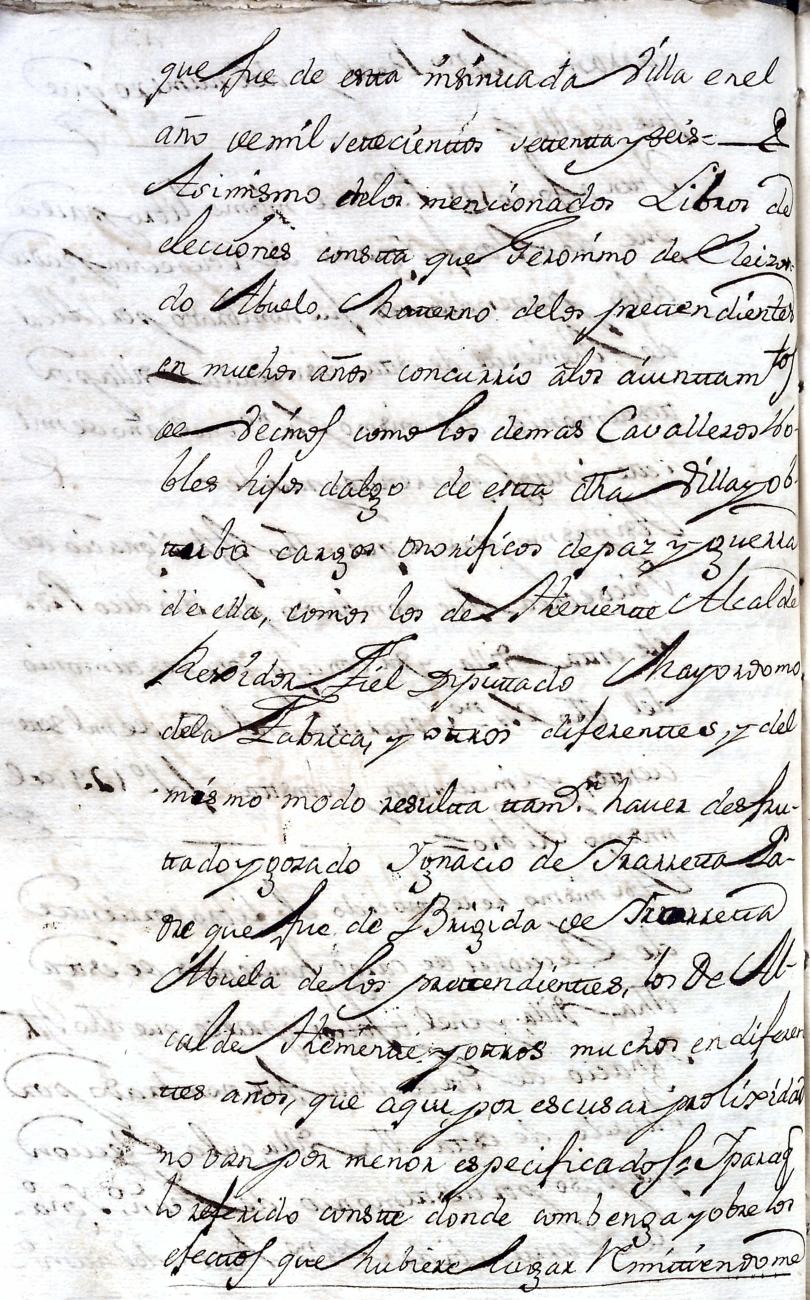 que fue de estta insinuada Villa en el
año de mil settecienttos settentta y seis =
Asimismo de los mencionados Libros de
elecciones constta que Geronimo de Eleizon-
do Abuelo Matterno de los prettendienttes
en muchos años concurrio a los aiunttam.tos
de Vecinos como los demas Cavalleros No-
bles hijos dalgo de estta dha Villa y ob-
tubo cargos onorificos de paz y guerra
de ella, como los de Theniente Alcalde
Rexidor Fiel Diputtado Mayordomo
de la Fabrica, y ottros diferenttes, y del
mismo modo resultta ttamv.n haver desfru-
ttado y gozado Ygnacio de Ytarretta Pa-
dre que fue de Brigida de Ytarretta
Abuela de los prettendienttes, los de Al-
calde Theniente y ottros muchos en diferen
ttes años, que aqui por escusar prolixidad
no van por menor especificados = Y para q
lo referido constte donde combenga y obre los
efecttos que hubiere lugar Remittiendome